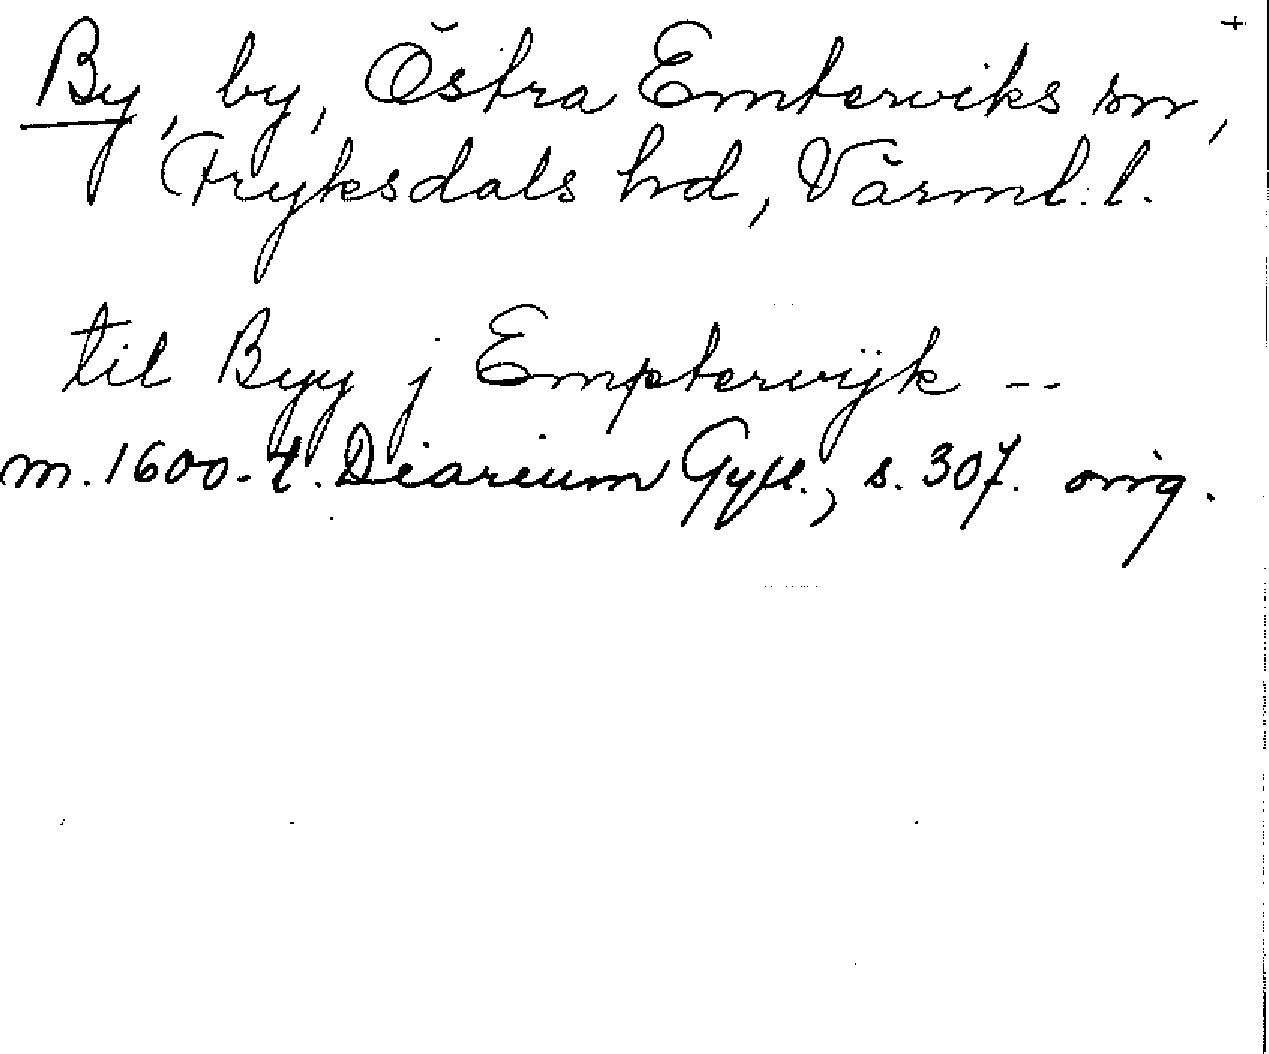 +
By, by, Östra Emterviks sn,
Fryksdals hd, Värml. l.
til Byy j Empterwijk --
m. 1600-t. Diarium Gyll., s. 307. orig.